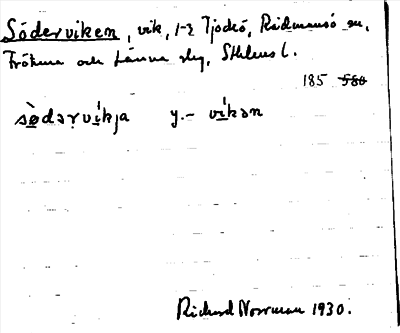 Söderviken, vik, 1-2 Tjockö, Rådmansö sn,
Frötuna och Länna slg, Sthlms l.
185 580
sø̀dərvíkja y.- víkən
Richard Norrman 1930.